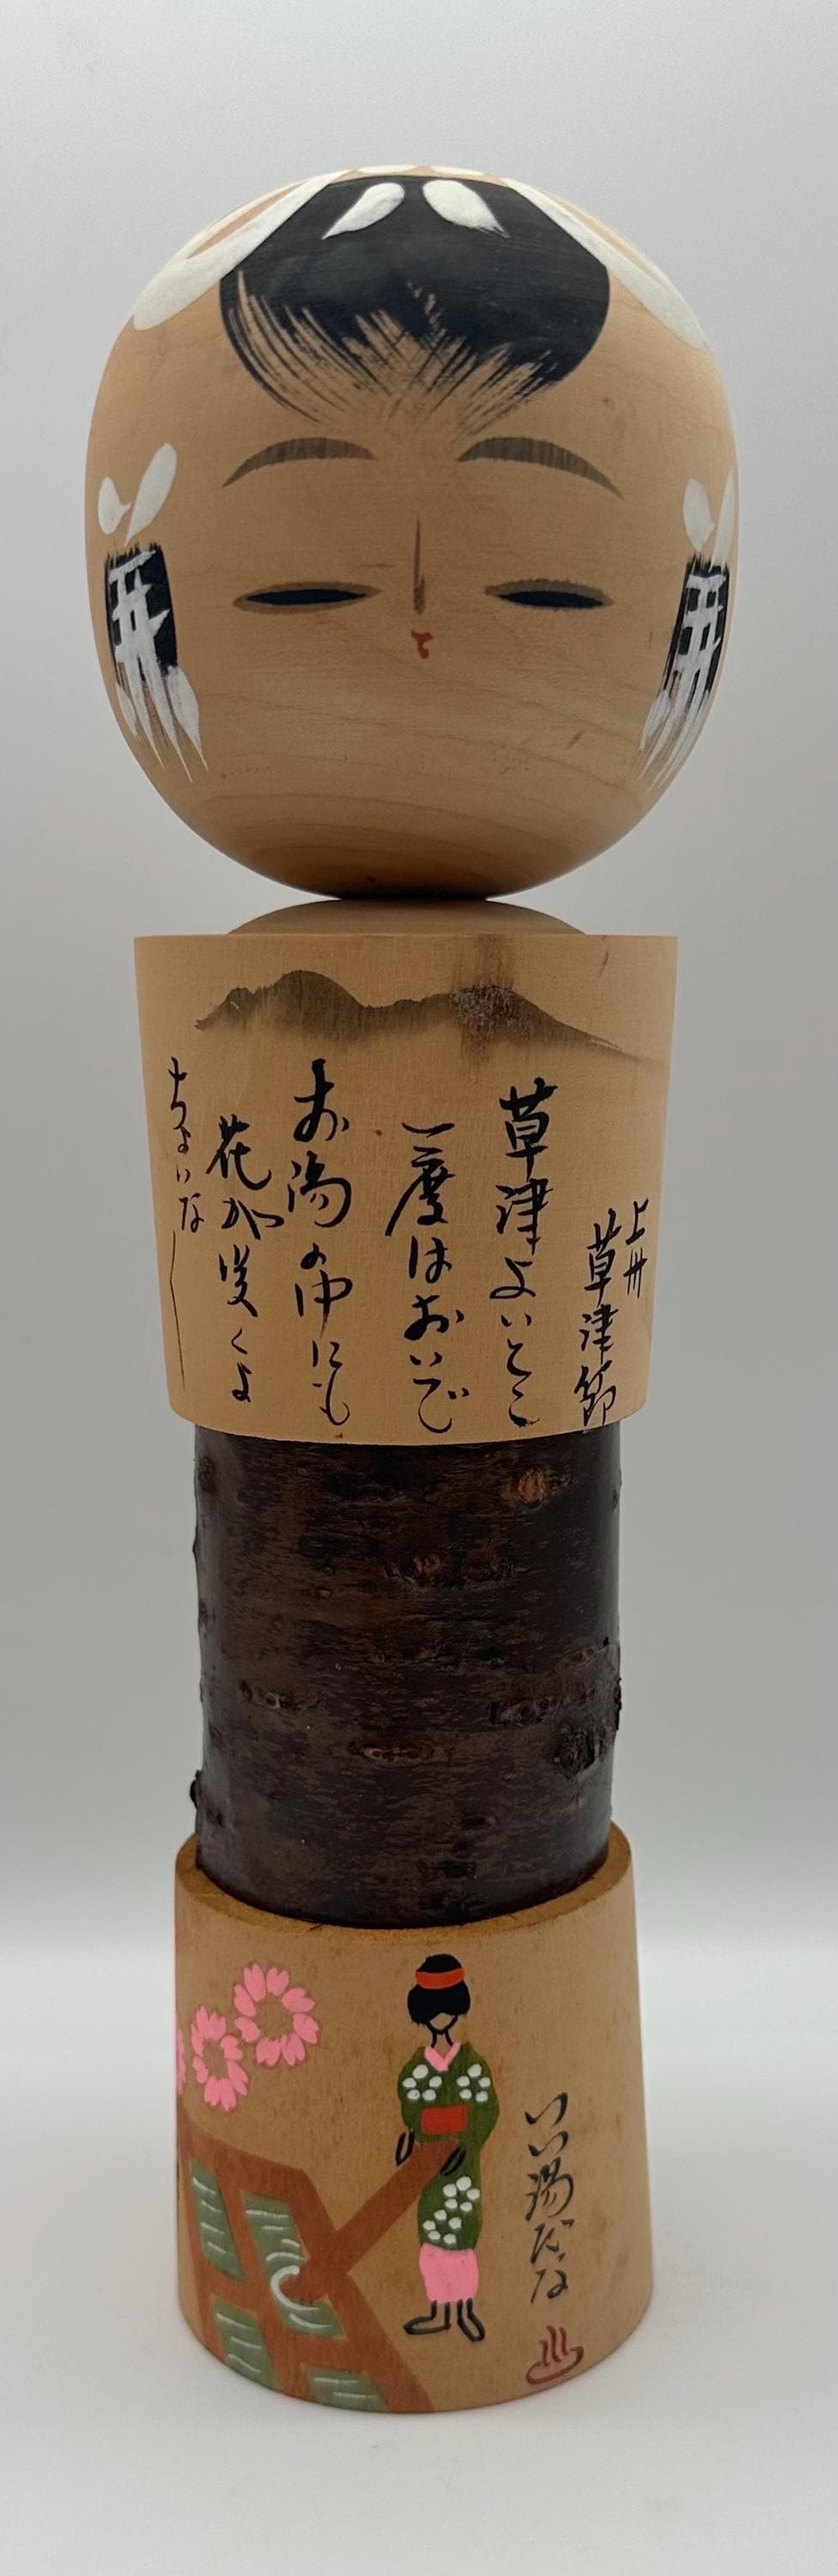 上州
草津節
草津よいとこ
一度はおいで
お湯の中にも
花が咲くよ
ちよいな
いい湯だな